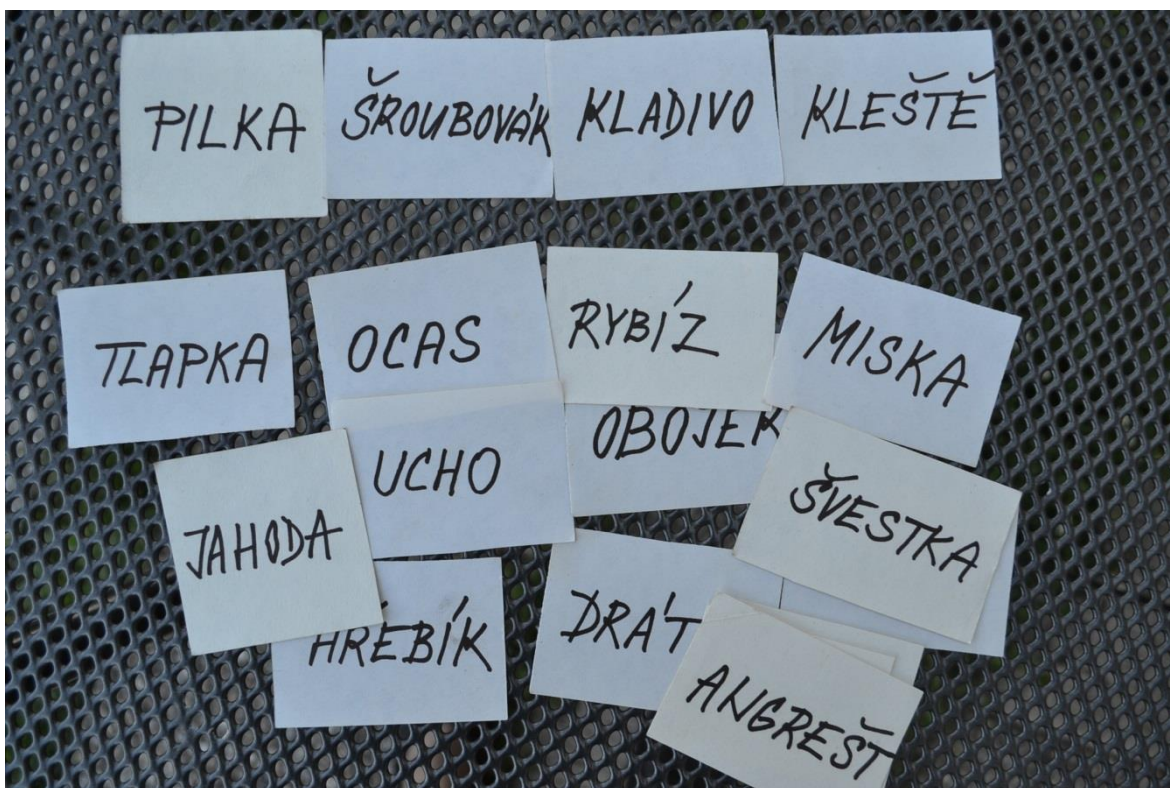 PILKA ŠROUBOVÁK KLADIVO KLEŠTĚ
TLAPKA OCAS RYBÍZ MISKA
UCHO OBOJEK
JAHODA ŠVESTKA
HŘEBÍK DRÁT
ANGREŠT